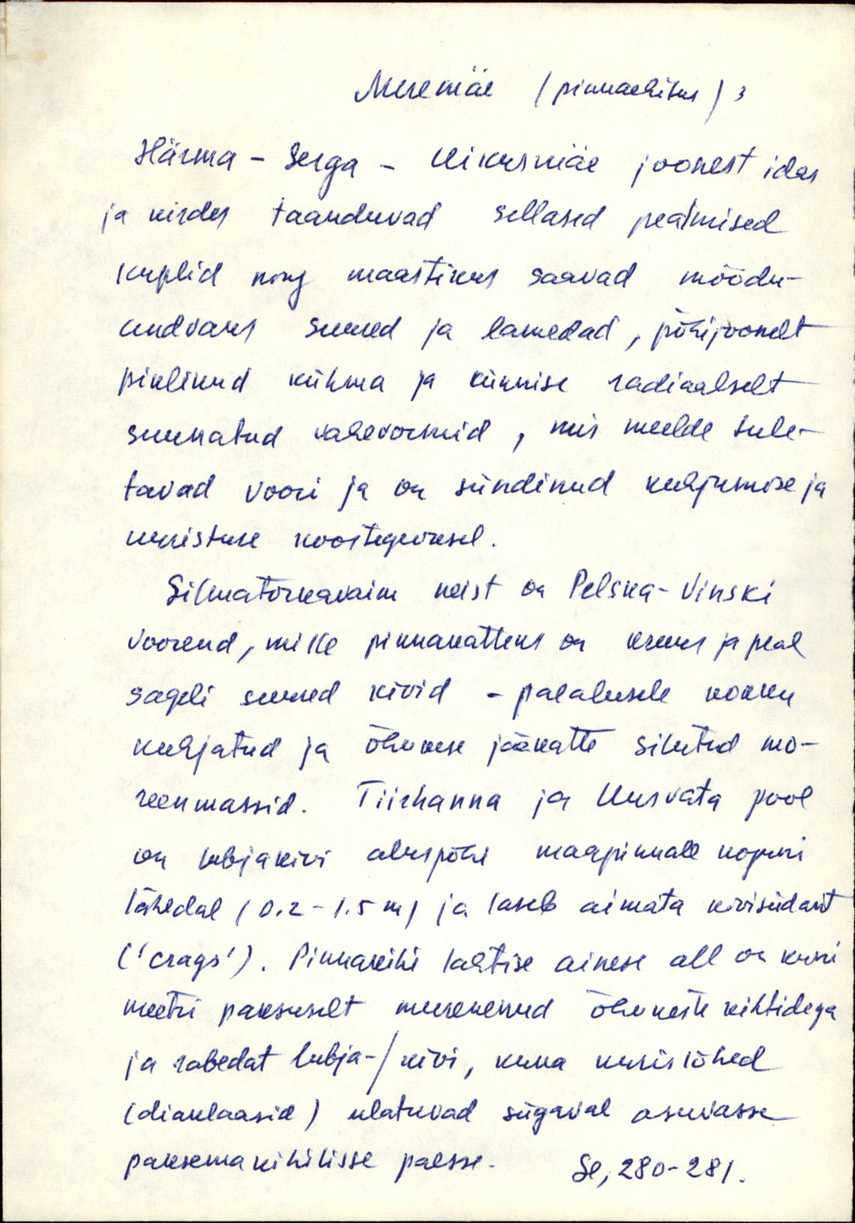 Meremäe (pinnaehitus) 3
Härma – Serga – Kikusmäe joonest idas
ja kirdes taanduvad sellased peatmised
kuplid ning maastikus saavad mõõdu-
andvaks suured ja lamedad, põhijoonelt
piklikud kühma ja künnise radiaalselt
suunatud vahevormid, mis meelde tule-
tavad voori ja on sündinud kuhjumise ja
uuristuse koostegevusel.
Silmatorkavaim neist on Pelska-Vinski
voorend, mille pinnakatteks on kruus ja peal
sageli suured kivid – paealusele kokku
kuhjatud ja õhukese jääkatte silutud mo-
reenmassid. Tiirhanna ja Uusvada pool
on lubjakivi aluspõhi maapinnale kopuni
lähedal (0.2 – 1.5 m) ja laseb aimata kivisüdant
('crags'). Pinnakihi lahtise ainese all on kuni
meetri paksuselt murenenud õhukeste kihtidega
ja rabedat lubja-/kivi, kuna uurislõhed
(diaklaasid) ulatuvad sügaval asuvasse
paksemakihilisse paesse. Se, 280-281.